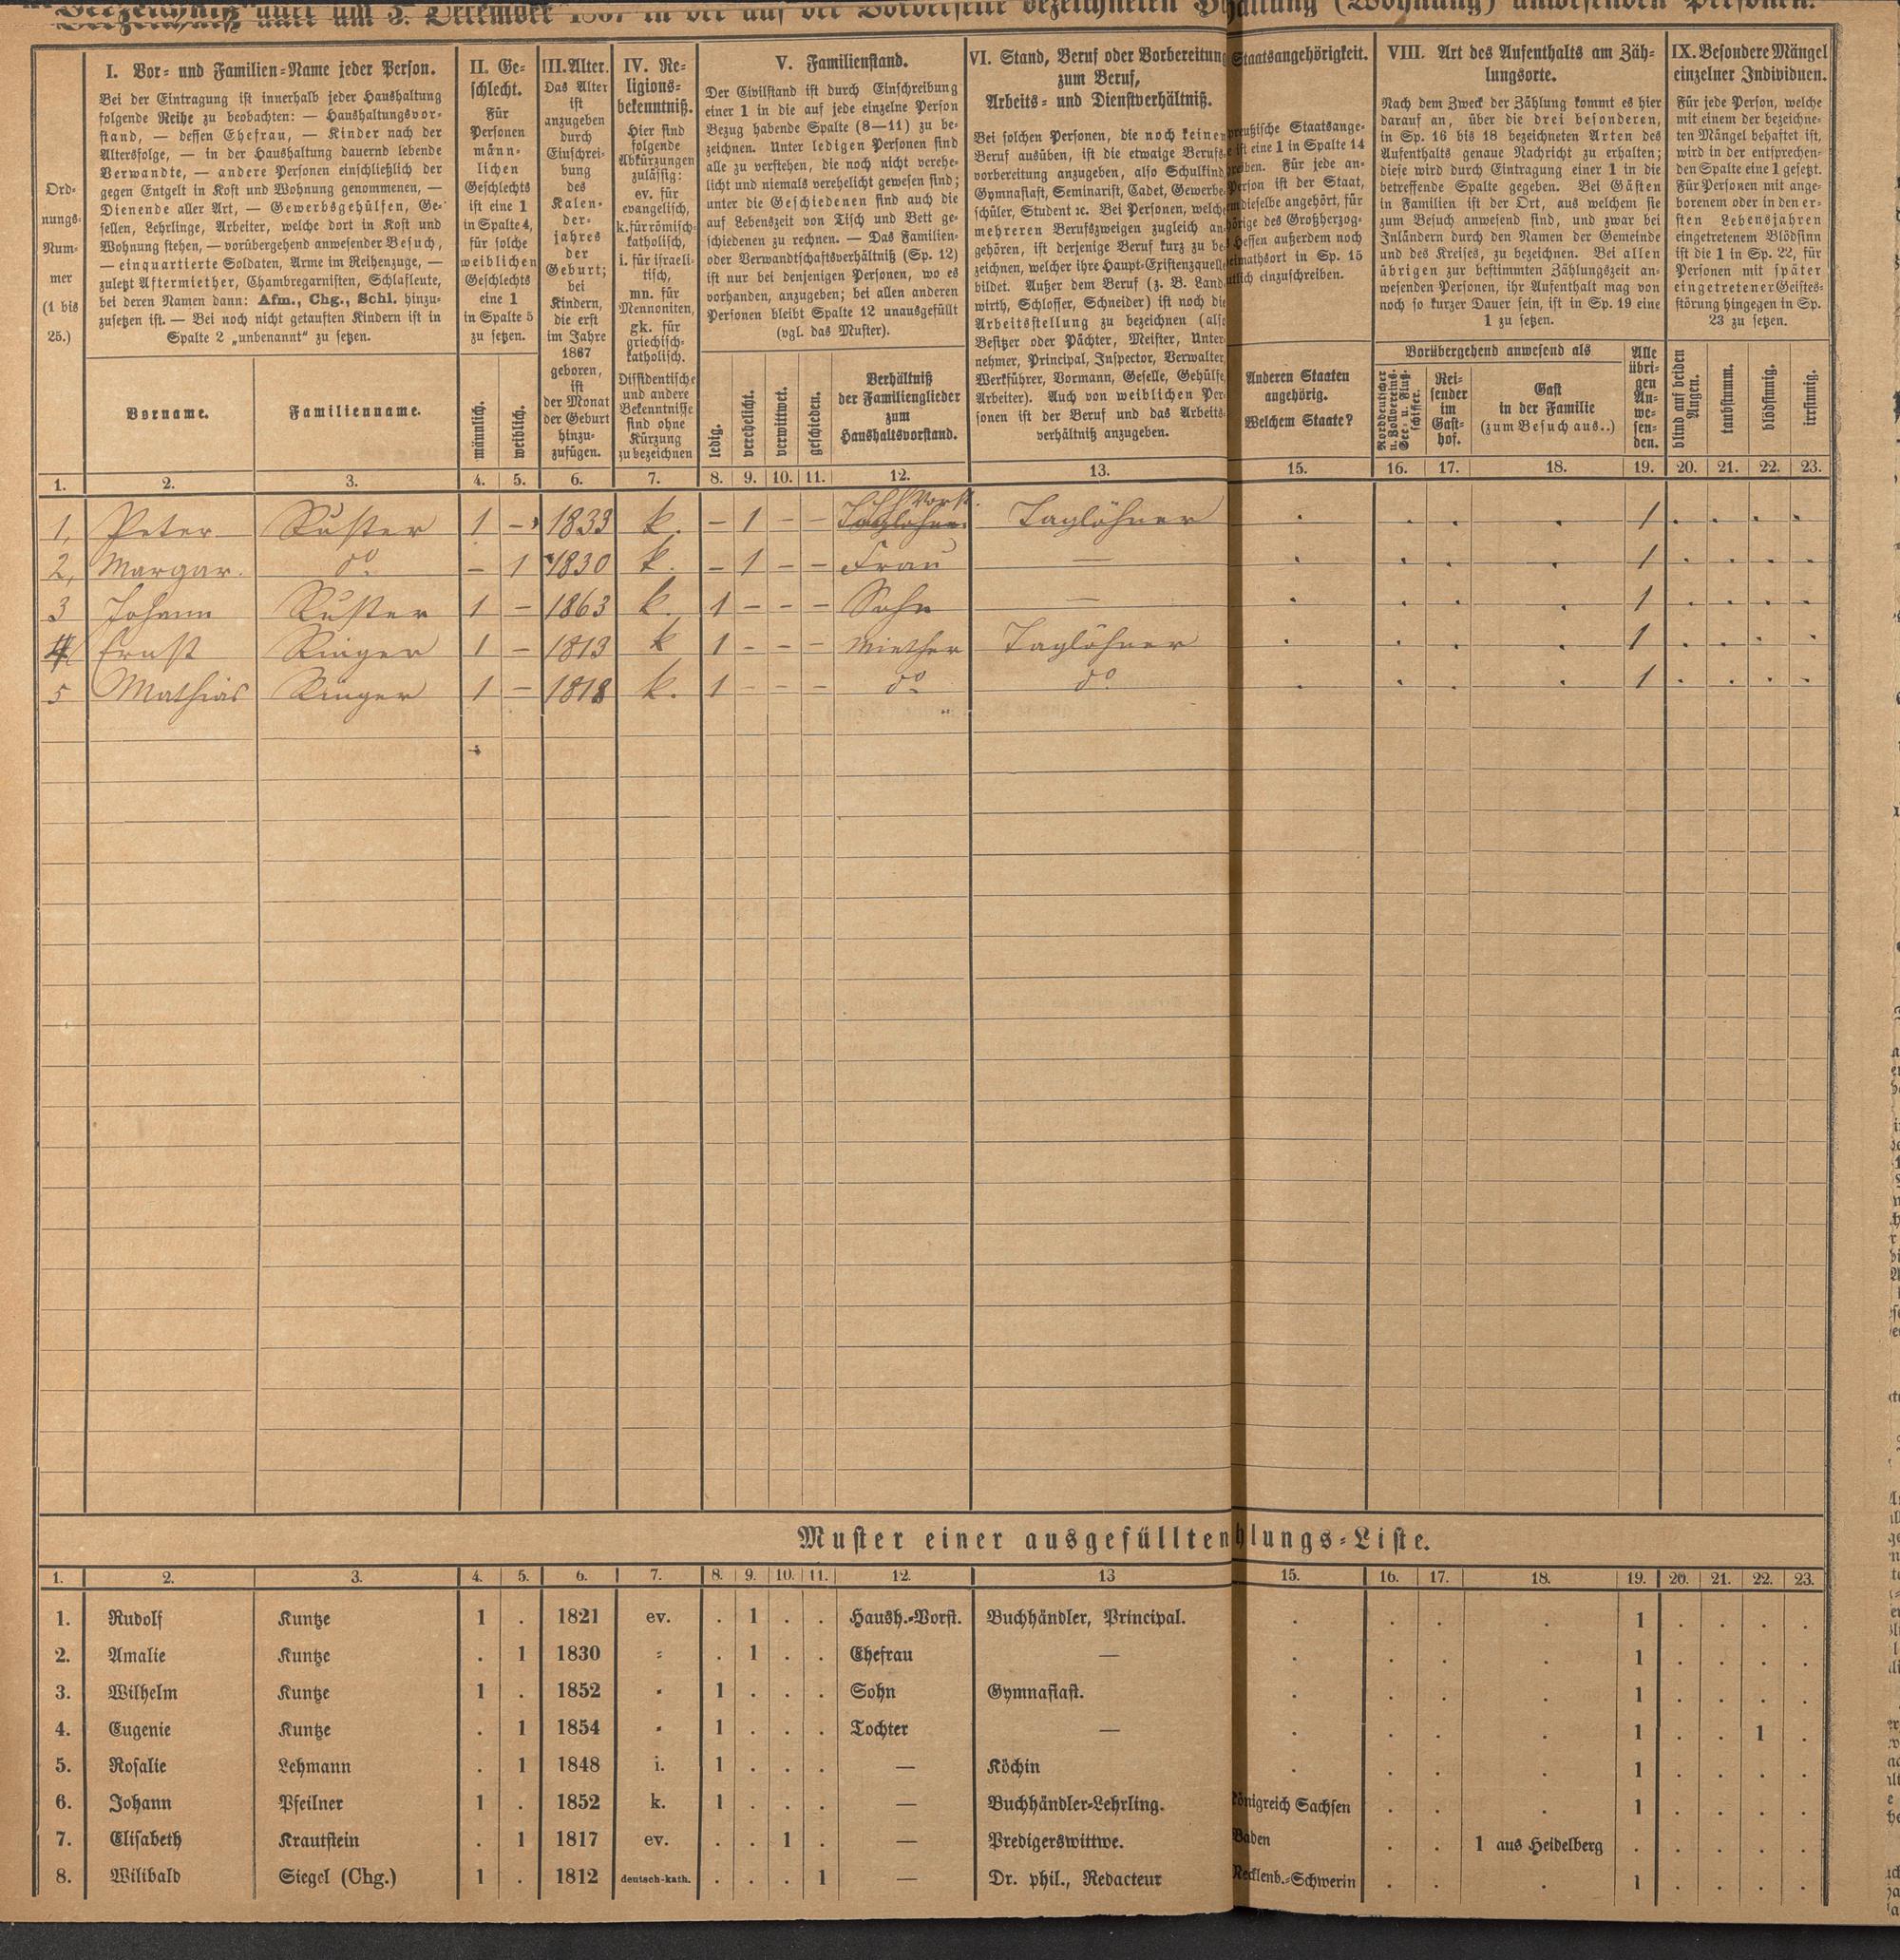 am 3. December 1867 in der auf der Vorderseite bezeichneten Haltung (Wohnung) anwesenden Personen.
Ord-
nungs-
Num-
mer
(1 bis
25.)
I. Vor- und Familien-Name jeder Person.
Bei der Eintragung ist innerhalb jeder Haushaltung
folgende Reihe zu beobachten: — Haushaltungsvor-
stand, — dessen Ehefrau, — Kinder nach der
Altersfolge, — in der Haushaltung dauernd lebende
Verwandte, — andere Personen einschließlich der
gegen Entgelt in Kost und Wohnung genommenen, —
Dienende aller Art, — Gewerbsgehülfen, Ge-
sellen, Lehrlinge, Arbeiter, welche dort in Kost und
Wohnung stehen, — vorübergehend anwesender Besuch,
— einquartierte Soldaten, Arme im Reihenzuge, —
zuletzt Aftermiether, Chambregarnisten, Schlafleute,
bei deren Namen dann: Afm., Chg., Schl. hinzu-
zusetzen ist. — Bei noch nicht getauften Kindern ist in
Spalte 2 „unbenannt" zu setzen.
Vorname.
Familienname.
II. Ge-
schlecht.
Für
Personen
männ-
lichen
Geschlechts
ist eine 1
in Spalte 4,
für solche
weiblichen
Geschlechts
eine 1
in Spalte 5
zu setzen.
männlich.
weiblich.
III. Alter.
Das Alter
ist
anzugeben
durch
Einschrei-
bung
des
Kalen-
der-
jahres
der
Geburt;
bei
Kindern,
die erst
im Jahre
1867
geboren,
ist
der Monat
der Geburt
hinzu-
zufügen.
IV. Re-
ligions-
bekenntniß.
Hier sind
folgende
Abkürzungen
zulässig:
ev. für
evangelisch,
k. für römisch-
katholisch,
i. für israeli-
tisch,
mn. für
Mennoniten,
gk. für
griechisch-
katholisch.
Dissidentische
und andere
Bekenntnisse
sind ohne
Kürzung
zu bezeichnen
V. Familienstand.
Der Civilstand ist durch Einschreibung
einer 1 in die auf jede einzelne Person
Bezug habende Spalte (8—11) zu be-
zeichnen. Unter ledigen Personen sind
alle zu verstehen, die noch nicht verehe-
licht und niemals verehelicht gewesen sind;
unter die Geschiedenen sind auch die
auf Lebenszeit von Tisch und Bett ge-
schiedenen zu rechnen. — Das Familien-
oder Verwandtschaftsverhältniß (Sp. 12)
ist nur bei denjenigen Personen, wo es
vorhanden, anzugeben; bei allen anderen
Personen bleibt Spalte 12 unausgefüllt
(vgl. das Muster).
ledig.
verehelicht.
verwittwet.
geschieden.
Verhältniß
der Familienglieder
zum
Haushaltsvorstand.
VI. Stand, Beruf oder Vorbereitung
zum Beruf,
Arbeits- und Dienstverhältniß.
Bei solchen Personen, die noch keinen
Beruf ausüben, ist die etwaige Berufs-
vorbereitung anzugeben, also Schulkind,
Gymnasiast, Seminarist, Cadet, Gewerbe-
schüler, Student ꝛc. Bei Personen, welche
mehreren Berufszweigen zugleich an-
gehören, ist derjenige Beruf kurz zu be-
zeichnen, welcher ihre Haupt-Existenzquelle
bildet. Außer dem Beruf (z. B. Land-
wirth, Schlosser, Schneider) ist noch die
Arbeitsstellung zu bezeichnen (also
Besitzer oder Pächter, Meister, Unter-
nehmer, Principal, Inspector, Verwalter,
Werkführer, Vormann, Geselle, Gehülfe,
Arbeiter). Auch von weiblichen Per-
sonen ist der Beruf und das Arbeits-
verhältniß anzugeben.
Staatsangehörigkeit.
preußische Staatsange-
ist eine 1 in Spalte 14
Für jede an-
Person ist der Staat,
dieselbe angehört, für
des Großherzog-
Hessen außerdem noch
in Sp. 15
einzuschreiben.
Anderen Staaten
angehörig.
Welchem Staate?
VIII. Art des Aufenthalts am Zäh-
lungsorte.
Nach dem Zweck der Zählung kommt es hier
darauf an, über die drei besonderen,
in Sp. 16 bis 18 bezeichneten Arten des
Aufenthalts genaue Nachricht zu erhalten;
diese wird durch Eintragung einer 1 in die
betreffende Spalte gegeben. Bei Gästen
in Familien ist der Ort, aus welchem sie
zum Besuch anwesend sind, und zwar bei
Inländern durch den Namen der Gemeinde
und des Kreises, zu bezeichnen. Bei allen
übrigen zur bestimmten Zählungszeit an-
wesenden Personen, ihr Aufenthalt mag von
noch so kurzer Dauer sein, ist in Sp. 19 eine
1 zu setzen.
Vorübergehend anwesend als
Norddeutscher
u. Zollvereins-
See- u. Fluß-
schiffer.
Rei-
sender
im
Gast-
hof.
Gast
in der Familie
(zum Besuch aus..)
Alle
übri-
gen
An-
we-
sen-
den.
IX. Besondere Mängel
einzelner Individuen.
Für jede Person, welche
mit einem der bezeichne-
ten Mängel behaftet ist,
wird in der entsprechen-
den Spalte eine 1 gesetzt.
Für Personen mit ange-
borenem oder in den er-
sten Lebensjahren
eingetretenem Blödsinn
ist die 1 in Sp. 22, für
Personen mit später
eingetretener Geistes-
störung hingegen in Sp.
23 zu setzen.
blind auf beiden
Augen.
taubstumm.
blödsinnig.
irrsinnig.
1. 2. 3. 4. 5. 6. 7. 8. 9. 10. 11. 12. 13. 15. 16. 17. 18. 19. 20. 21. 22. 23.
Vorst.
1, Peter Ruster 1 – 1833 k. – 1 – – Taglöhner Taglöhner . . . . 1 . . . .
2, Margar. do – 1 1830 k. – 1 – – Frau — . . . . 1 . . . .
3 Johann Ruster 1 – 1863 k. 1 – – – Sohn — . . . . 1 . . . .
4 Ernst Ringer 1 – 1813 k 1 – – – Miether Taglöhner . . . . 1 . . . .
5 Mathias Ringer 1 – 1818 k. 1 – – – do do . . . . 1 . . . .
Muster einer ausgefüllten hlungs-Liste.
1. 2. 3. 4. 5. 6. 7. 8. 9. 10. 11. 12. 13 15. 16. 17. 18. 19. 20. 21. 22. 23.
1. Rudolf Kuntze 1 . 1821 ev. . 1 . . Haush.-Vorst. Buchhändler, Principal. . . . . 1 . . . .
2. Amalie Kuntze . 1 1830 = . 1 . . Ehefrau — . . . . 1 . . . .
3. Wilhelm Kuntze 1 . 1852 = 1 . . . Sohn Gymnasiast. . . . . 1 . . . .
4. Eugenie Kuntze . 1 1854 = 1 . . . Tochter — . . . . 1 . . 1 .
5. Rosalie Lehmann . 1 1848 i. 1 . . . — Köchin . . . . 1 . . . .
6. Johann Pfeilner 1 . 1852 k. 1 . . . — Buchhändler-Lehrling. Königreich Sachsen . . . 1 . . . .
7. Elisabeth Krautstein . 1 1817 ev. . . 1 . — Predigerswittwe. Baden . . 1 aus Heidelberg . . . . .
8. Wilibald Siegel (Chg.) 1 . 1812 deutsch-kath. . . . 1 — Dr. phil., Redacteur Mecklenb.-Schwerin . . . 1 . . . .